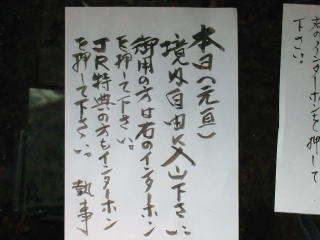 本日(元旦)
境内自由に入山下さい
御用の方は右のインターホン
を押して下さい。
JR特典の方もインターホン
を押して下さい。 執事
右のインターホンを押して
下さい。